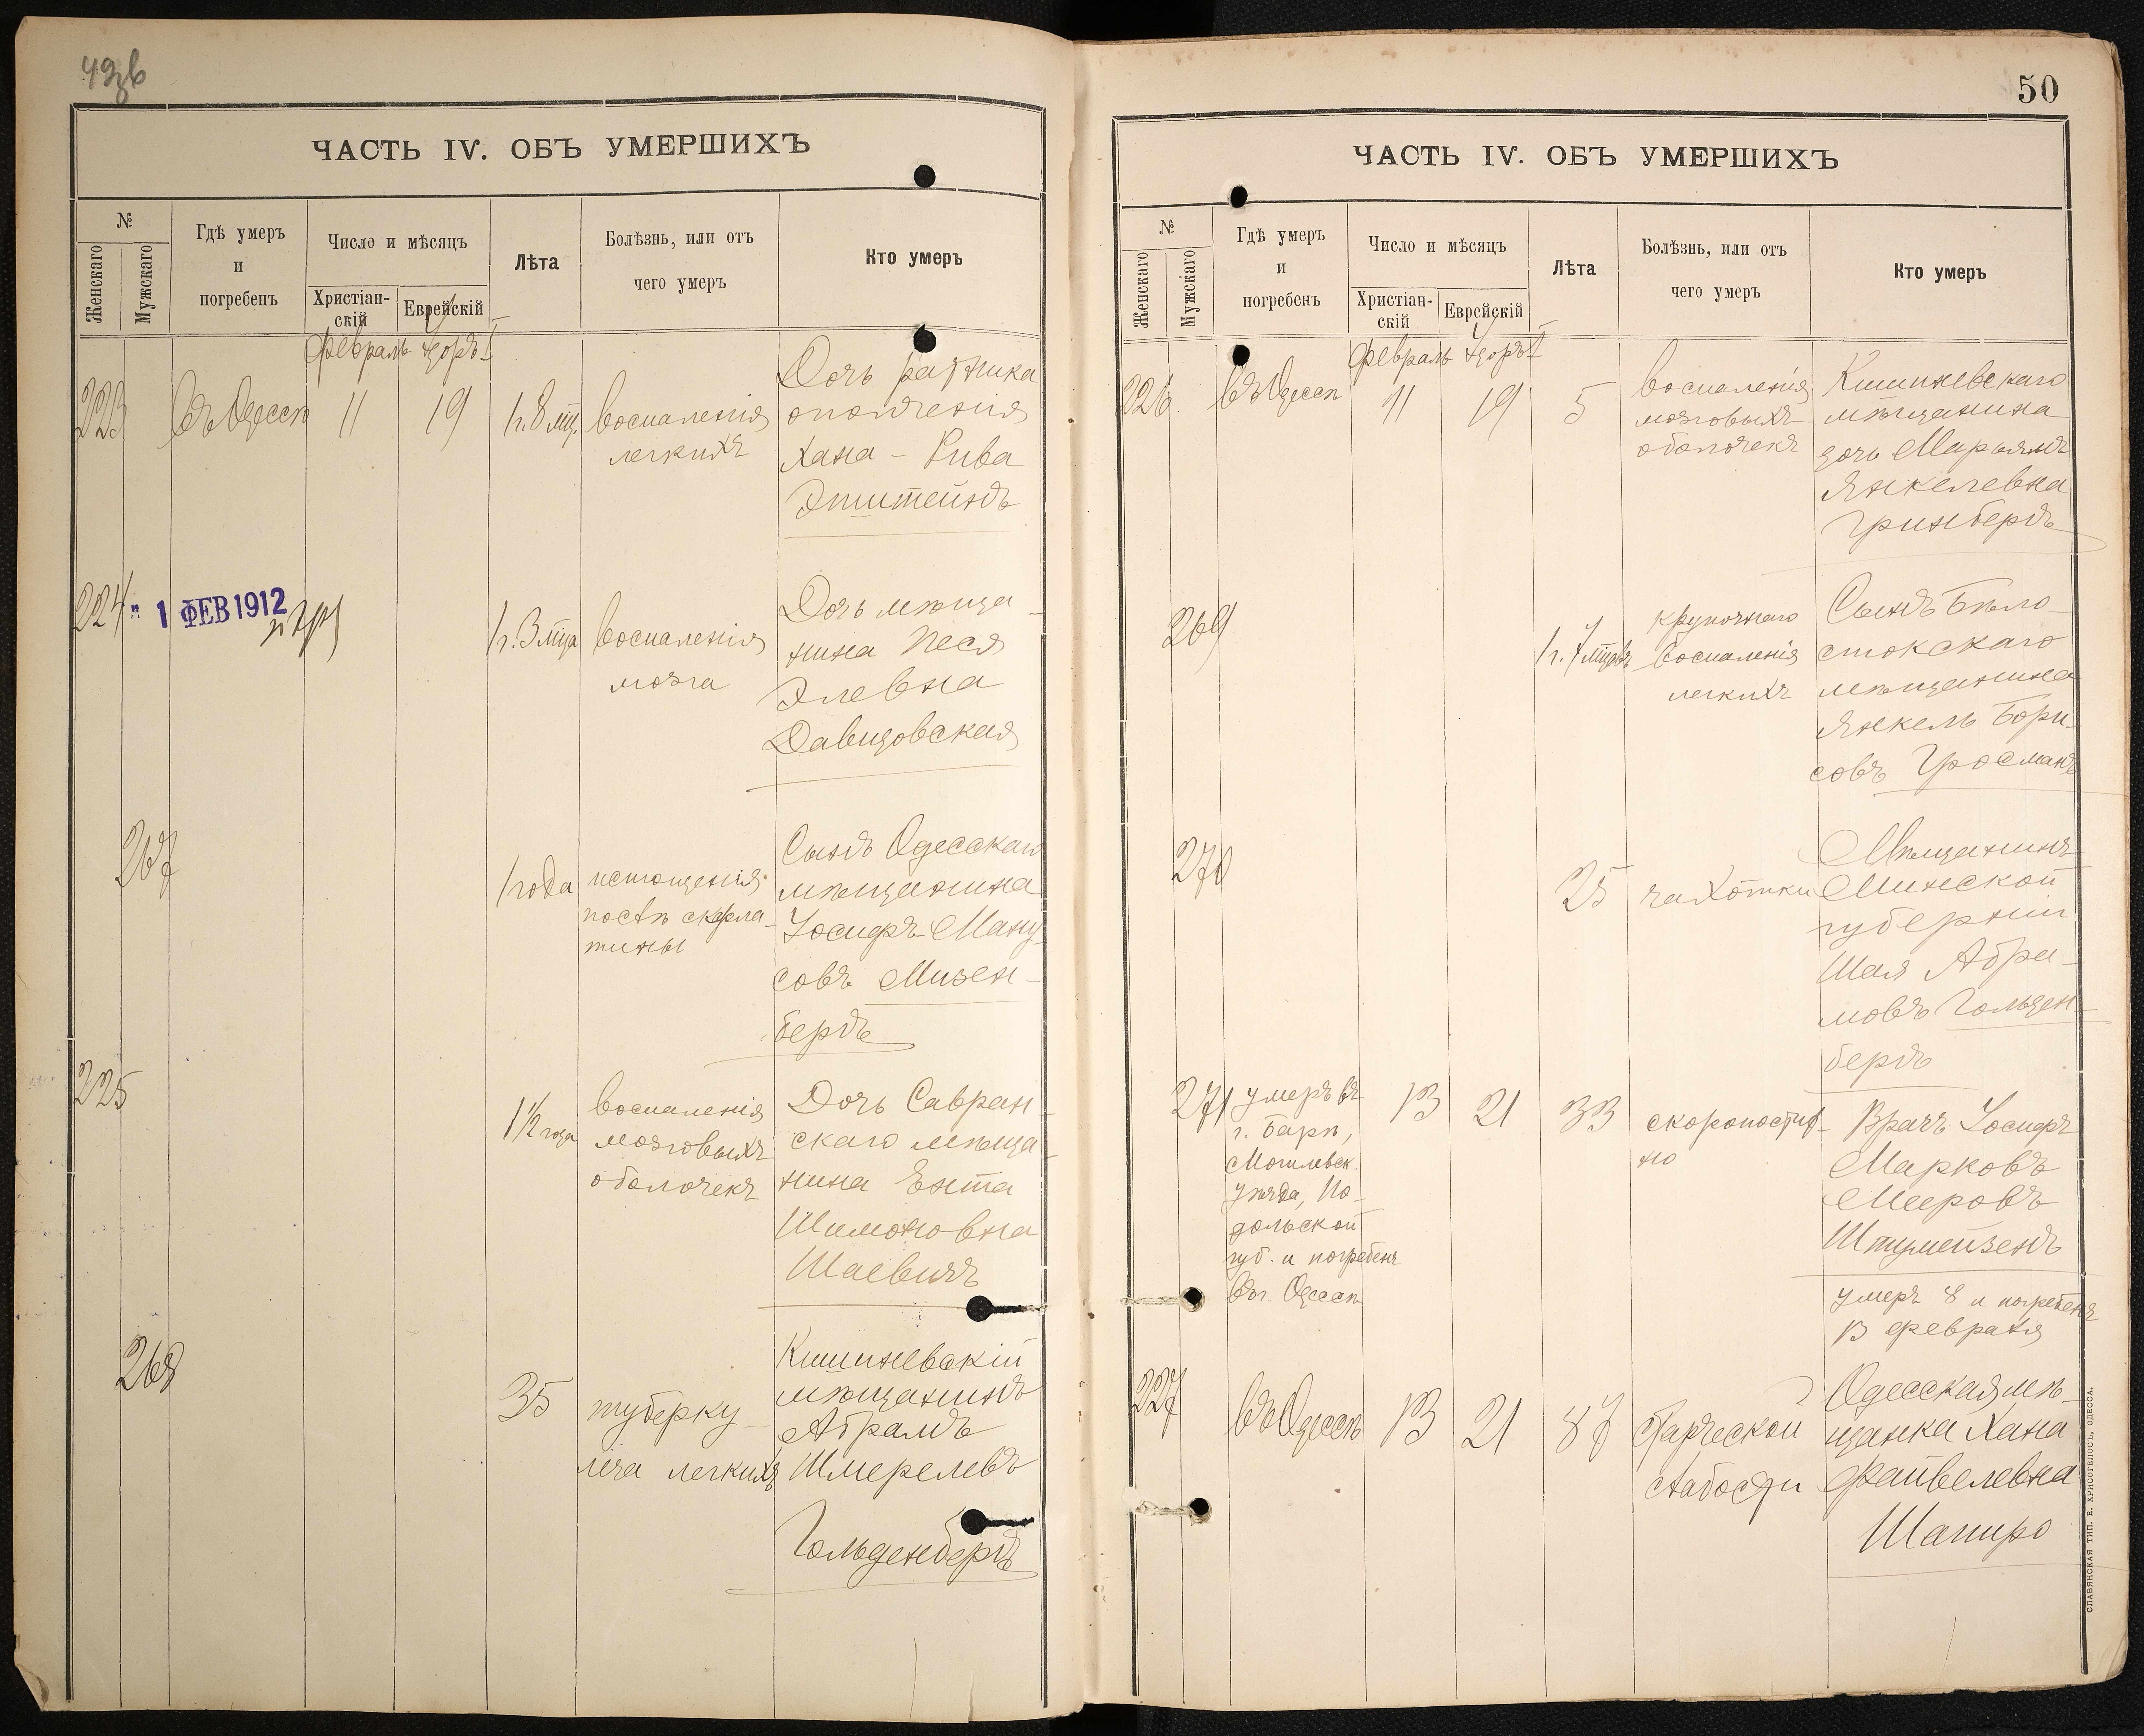 ЧАСТЬ IV. ОБЪ УМЕРШИХЪ
№
Женскаго
Мужскаго
Гдѣ умеръ
и
погребенъ
Число и мѣсяцъ
Христіан-
скій
Еврейскій
Лѣта
Болѣзнь, или отъ
чего умеръ
Кто умеръ
Февраль
223
въ Одессѣ
11
19
1 г. 8 мц.
воспаленія
легкихъ
Дочь ратника
ополченія
Хана - Рива
Эпштейнъ
224
1 ФЕВ 1912
1 г. 3 мца
воспаленія
мозга
Дочь мѣща-
нина Песя
Элевна
Давидовская
267
1 года
истощенія
послѣ скарла-
тины
Сынъ Одесскаго
мѣщанина
Іосифъ Ману-
совъ Мизен-
бергъ
225
1 1/2 года
воспаленія
мозговыхъ
оболочекъ
Дочь Савран-
скаго мѣща-
нина Ента
Шимоновна
Шаевичъ
268
35
туберку-
леза легкихъ
Кишиневскій
мѣщанинъ
Абрамъ
Шмерелевъ
Гольденбергъ
50
ЧАСТЬ IV. ОБЪ УМЕРШИХЪ
№
Женскаго
Мужскаго
Гдѣ умеръ
и
погребенъ
Число и мѣсяцъ
Христіан-
скій
Еврейскій
Лѣта
Болѣзнь, или отъ
чего умеръ
Кто умеръ
Февраль
226
въ Одессѣ
11
19
5
воспаленія
мозговыхъ
оболочекъ
Кишиневскаго
мѣщанина
дочь Марьямъ
Янкелевна
Гринбергъ
269
1 г. 7 мцевъ
крупознаго
воспаленія
легкихъ
Сынъ Бѣло-
стокскаго
мѣщанина
Янкель Бори-
совъ Гросманъ
270
25
чахотки
Мѣщанинъ
Минской
губерніи
Шая Абра-
мовъ Гольден-
бергъ
271
умеръ въ
г. Барѣ,
Могилевск.
уѣзда, По-
дольской
губ. и погребенъ
въ г. Одессѣ
13
21
33
скоропостиж-
но
Врачъ Іосифъ
Марковъ
Мееровъ
Штумейзенъ
умеръ 8 и погребенъ
13 февраля
227
въ Одессѣ
13
21
87
старческой
слабости
Одесская мѣ-
щанка Хана
Файвелевна
Шапиро
СЛАВЯНСКАЯ ТИП. Е. ХРИСОГЕЛОСЪ, ОДЕССА.